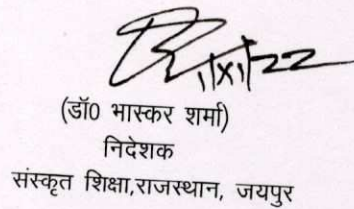 1/XI/22
(डॉ0 भास्कर शर्मा)
निदेशक
संस्कृत शिक्षा,राजस्थान, जयपुर